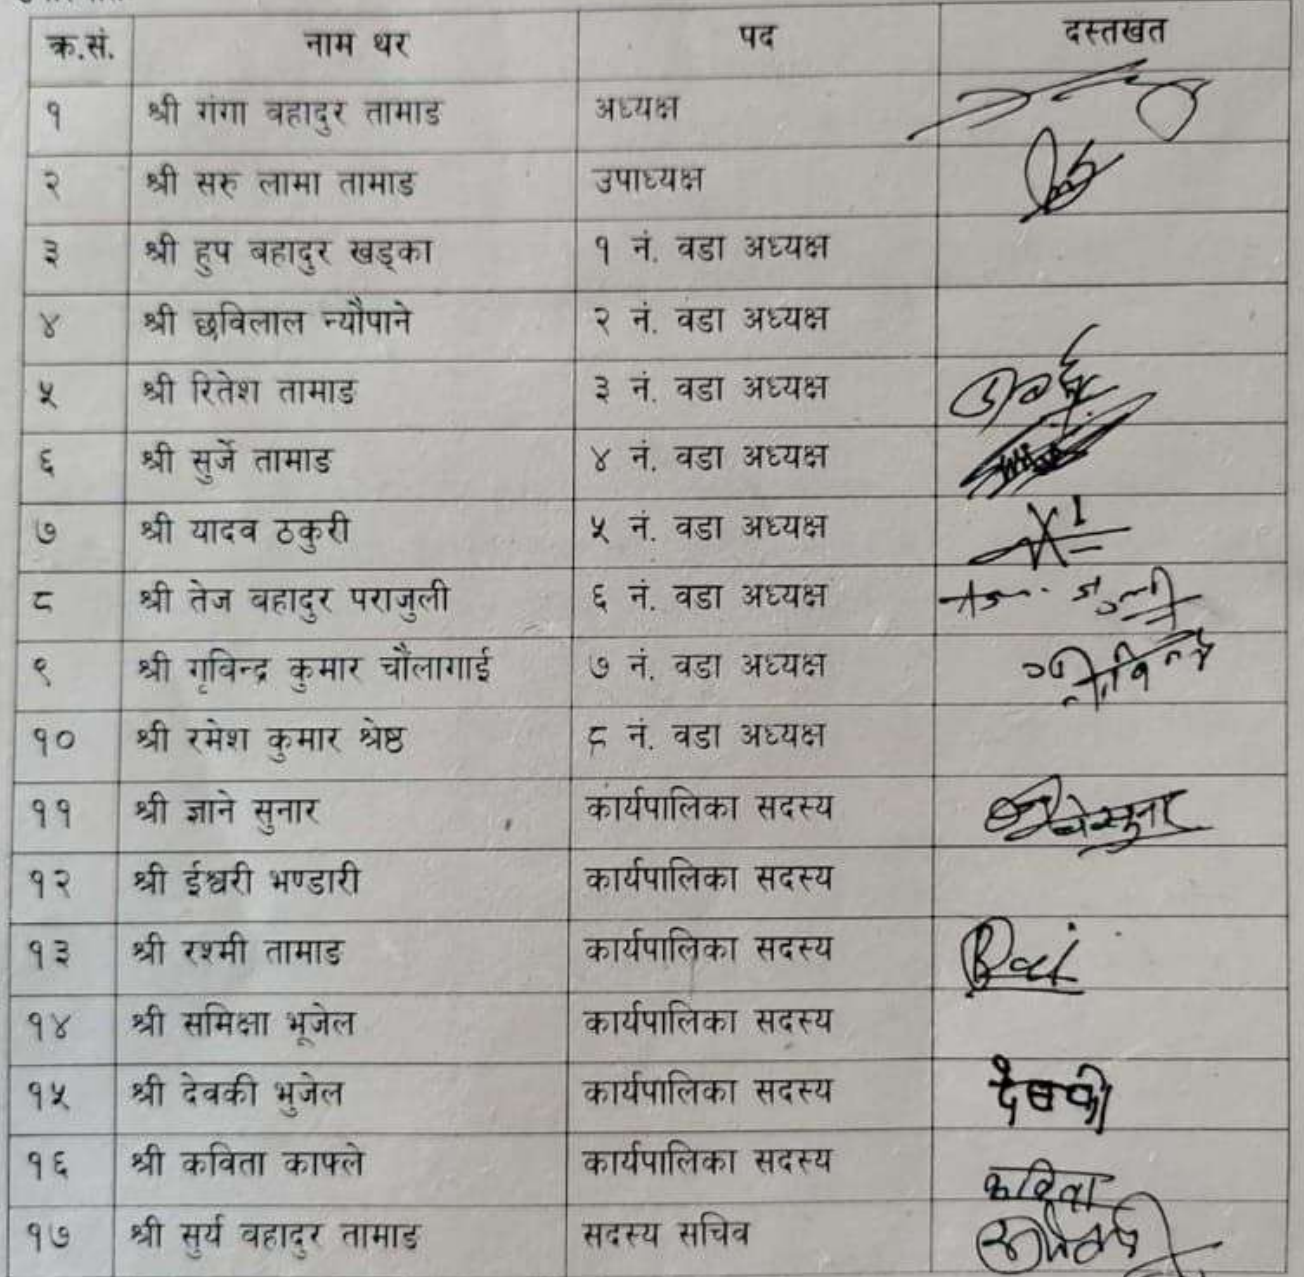 क्र.सं. नाम थर पद दस्तखत
१ श्री गंगा वहादुर तामाङ अध्यक्ष
२ श्री सरु लामा तामाङ उपाध्यक्ष
३ श्री हुप बहादुर खड्का १ नं. वडा अध्यक्ष
४ श्री छविलाल न्यौपाने २ नं. वडा अध्यक्ष
५ श्री रितेश तामाङ ३ नं. वडा अध्यक्ष
६ श्री सुर्जे तामाङ ४ नं. वडा अध्यक्ष
७ श्री यादव ठकुरी ५ नं. वडा अध्यक्ष
८ श्री तेज वहादुर पराजुली ६ नं. वडा अध्यक्ष
९ श्री गृविन्द्र कुमार चौलागाई ७ नं. वडा अध्यक्ष
१० श्री रमेश कुमार श्रेष्ठ ८ नं. वडा अध्यक्ष
११ श्री ज्ञाने सुनार कार्यपालिका सदस्य
१२ श्री ईश्वरी भण्डारी कार्यपालिका सदस्य
१३ श्री रश्मी तामाङ कार्यपालिका सदस्य
१४ श्री समिक्षा भूजेल कार्यपालिका सदस्य
१५ श्री देवकी भुजेल कार्यपालिका सदस्य देवकी
१६ श्री कविता काफ्ले कार्यपालिका सदस्य कविता
१७ श्री सुर्य वहादुर तामाङ सदस्य सचिव